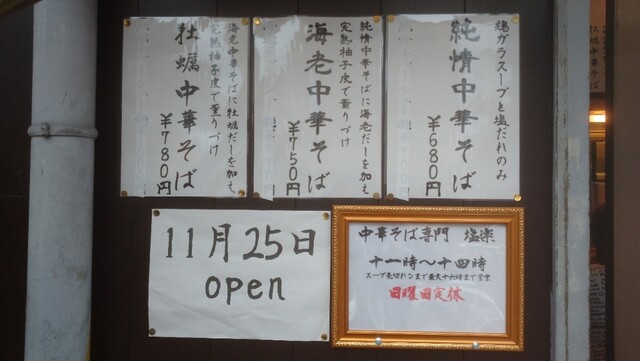 鶏ガラスープと塩だれのみ
純情中華そば
¥680円
純情中華そばに海老だしを加え
完熟柚子皮で薫りづけ
海老中華そば
¥750円
海老中華そばに牡蠣だしを加え
完熟柚子皮で薫りづけ
牡蠣中華そば
¥780円
11月25日
open
中華そば専門 塩楽
十一時〜十四時
スープ売切れつまで最大十六時まで営業
日曜日定休